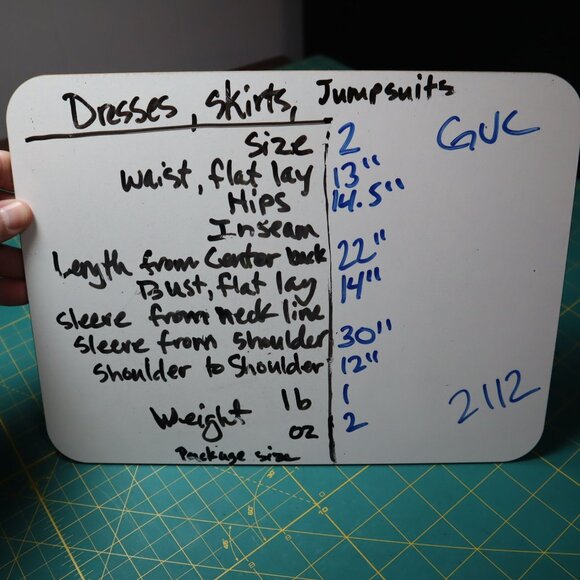 Dresses, skirts, Jumpsuits
size 2 GUC
waist, flat lay 13"
Hips 14.5"
Inseam
Length from Center back 22"
Bust, flat lay 14"
sleeve from neck line
sleeve from shoulder 30"
shoulder to shoulder 12"
Weight lb 1
oz 2 2112
Package size